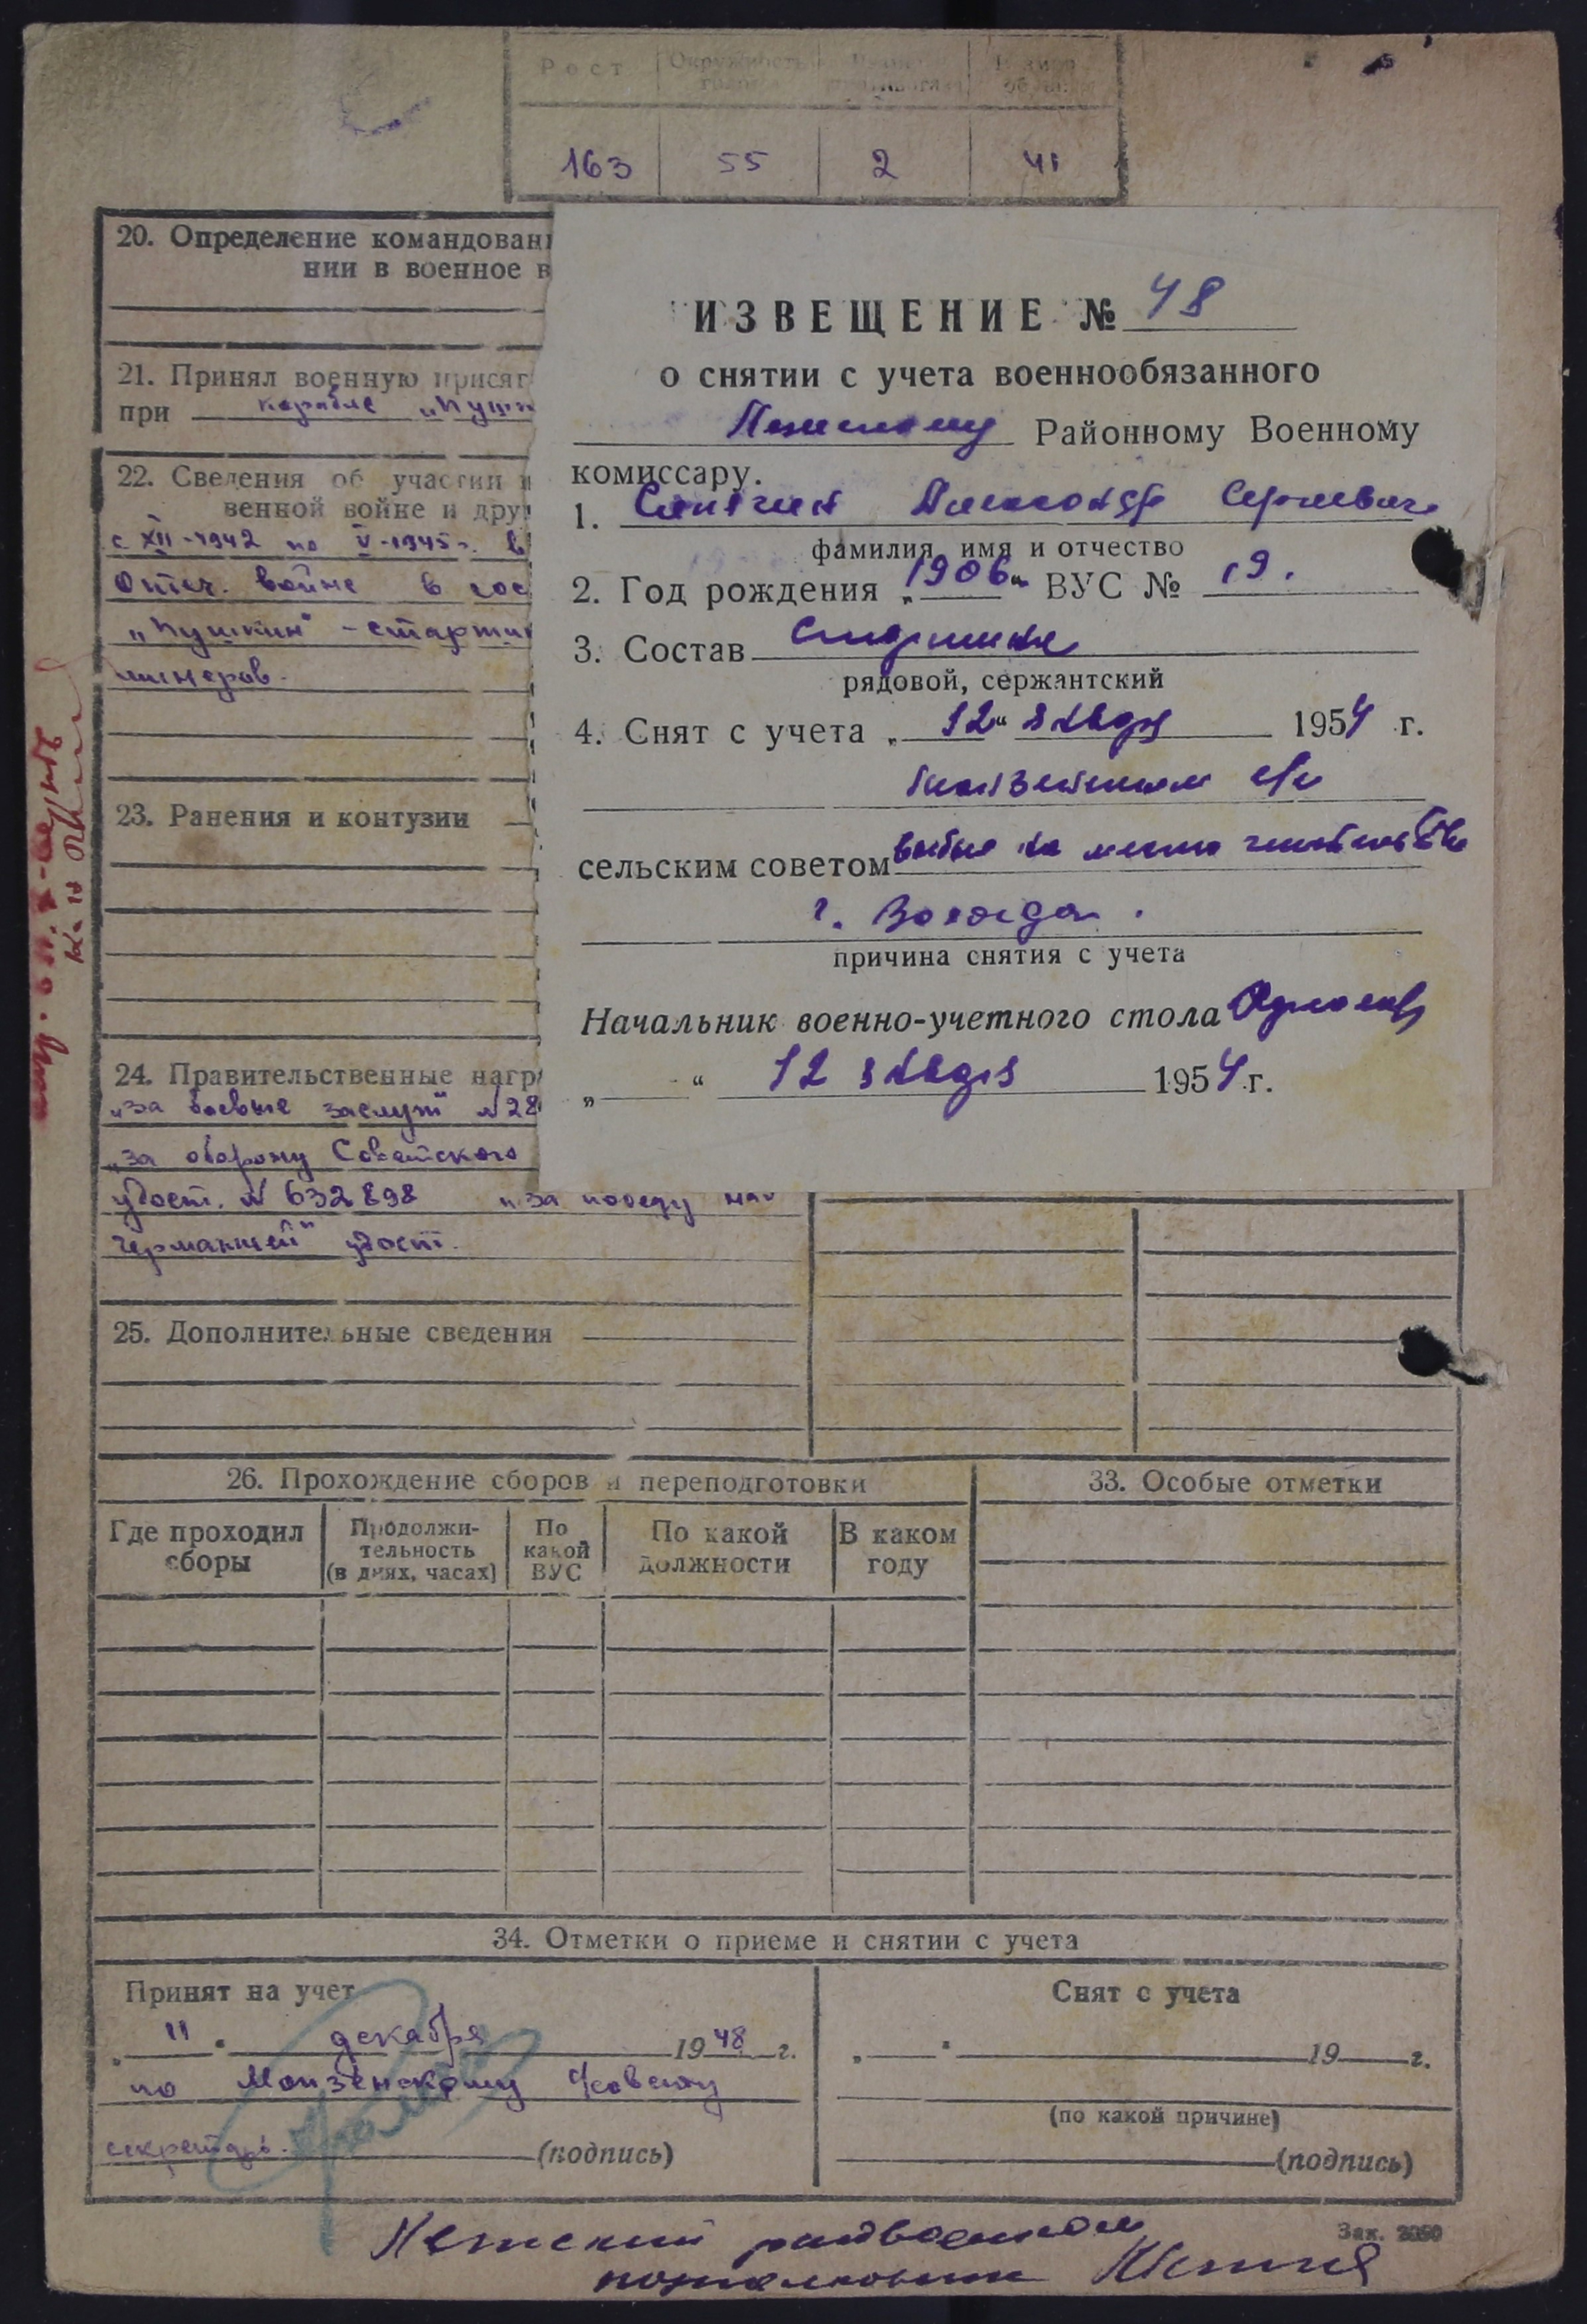 Рост Окружность
163 55 2 41
20. Определение командован
нии в военное в
21. Принял военную присяг
при корабле „Пушк
22. Сведения об участии
венной войне и дру
с XII-1942 по V-1945 г. в
Отеч. войне в сос
„Пушкин" – старши
минеров.
23. Ранения и контузии
24. Правительственные нагр
„за боевые заслуги" №28
„за оборону Советского
удост. № 632898 „за победу над
Германией" удост.
25. Дополнительные сведения
ИЗВЕЩЕНИЕ № 48
о снятии с учета военнообязанного
Районному Военному
комиссару.
1. Александр Сергеевич
фамилия, имя и отчество
2. Год рождения „1906" ВУС № 19.
3. Состав
рядовой, сержантский
4. Снят с учета „12" января 1954 г.
Монзенским с/с
сельским советом выбыл на место жительство
г. Вологда.
причина снятия с учета
Начальник военно-учетного стола
„ " 12 января 1954 г.
26. Прохождение сборов и переподготовки
33. Особые отметки
Где проходил сборы
Продолжительность (в днях, часах)
По какой ВУС
По какой должности
В каком году
34. Отметки о приеме и снятии с учета
Принят на учет
„11" декабря 1948 г.
по Монзенскому с/совету
секретарь. (подпись)
Снят с учета
„ " 19 г.
(по какой причине)
(подпись)
райвоенком
Зак. 2050